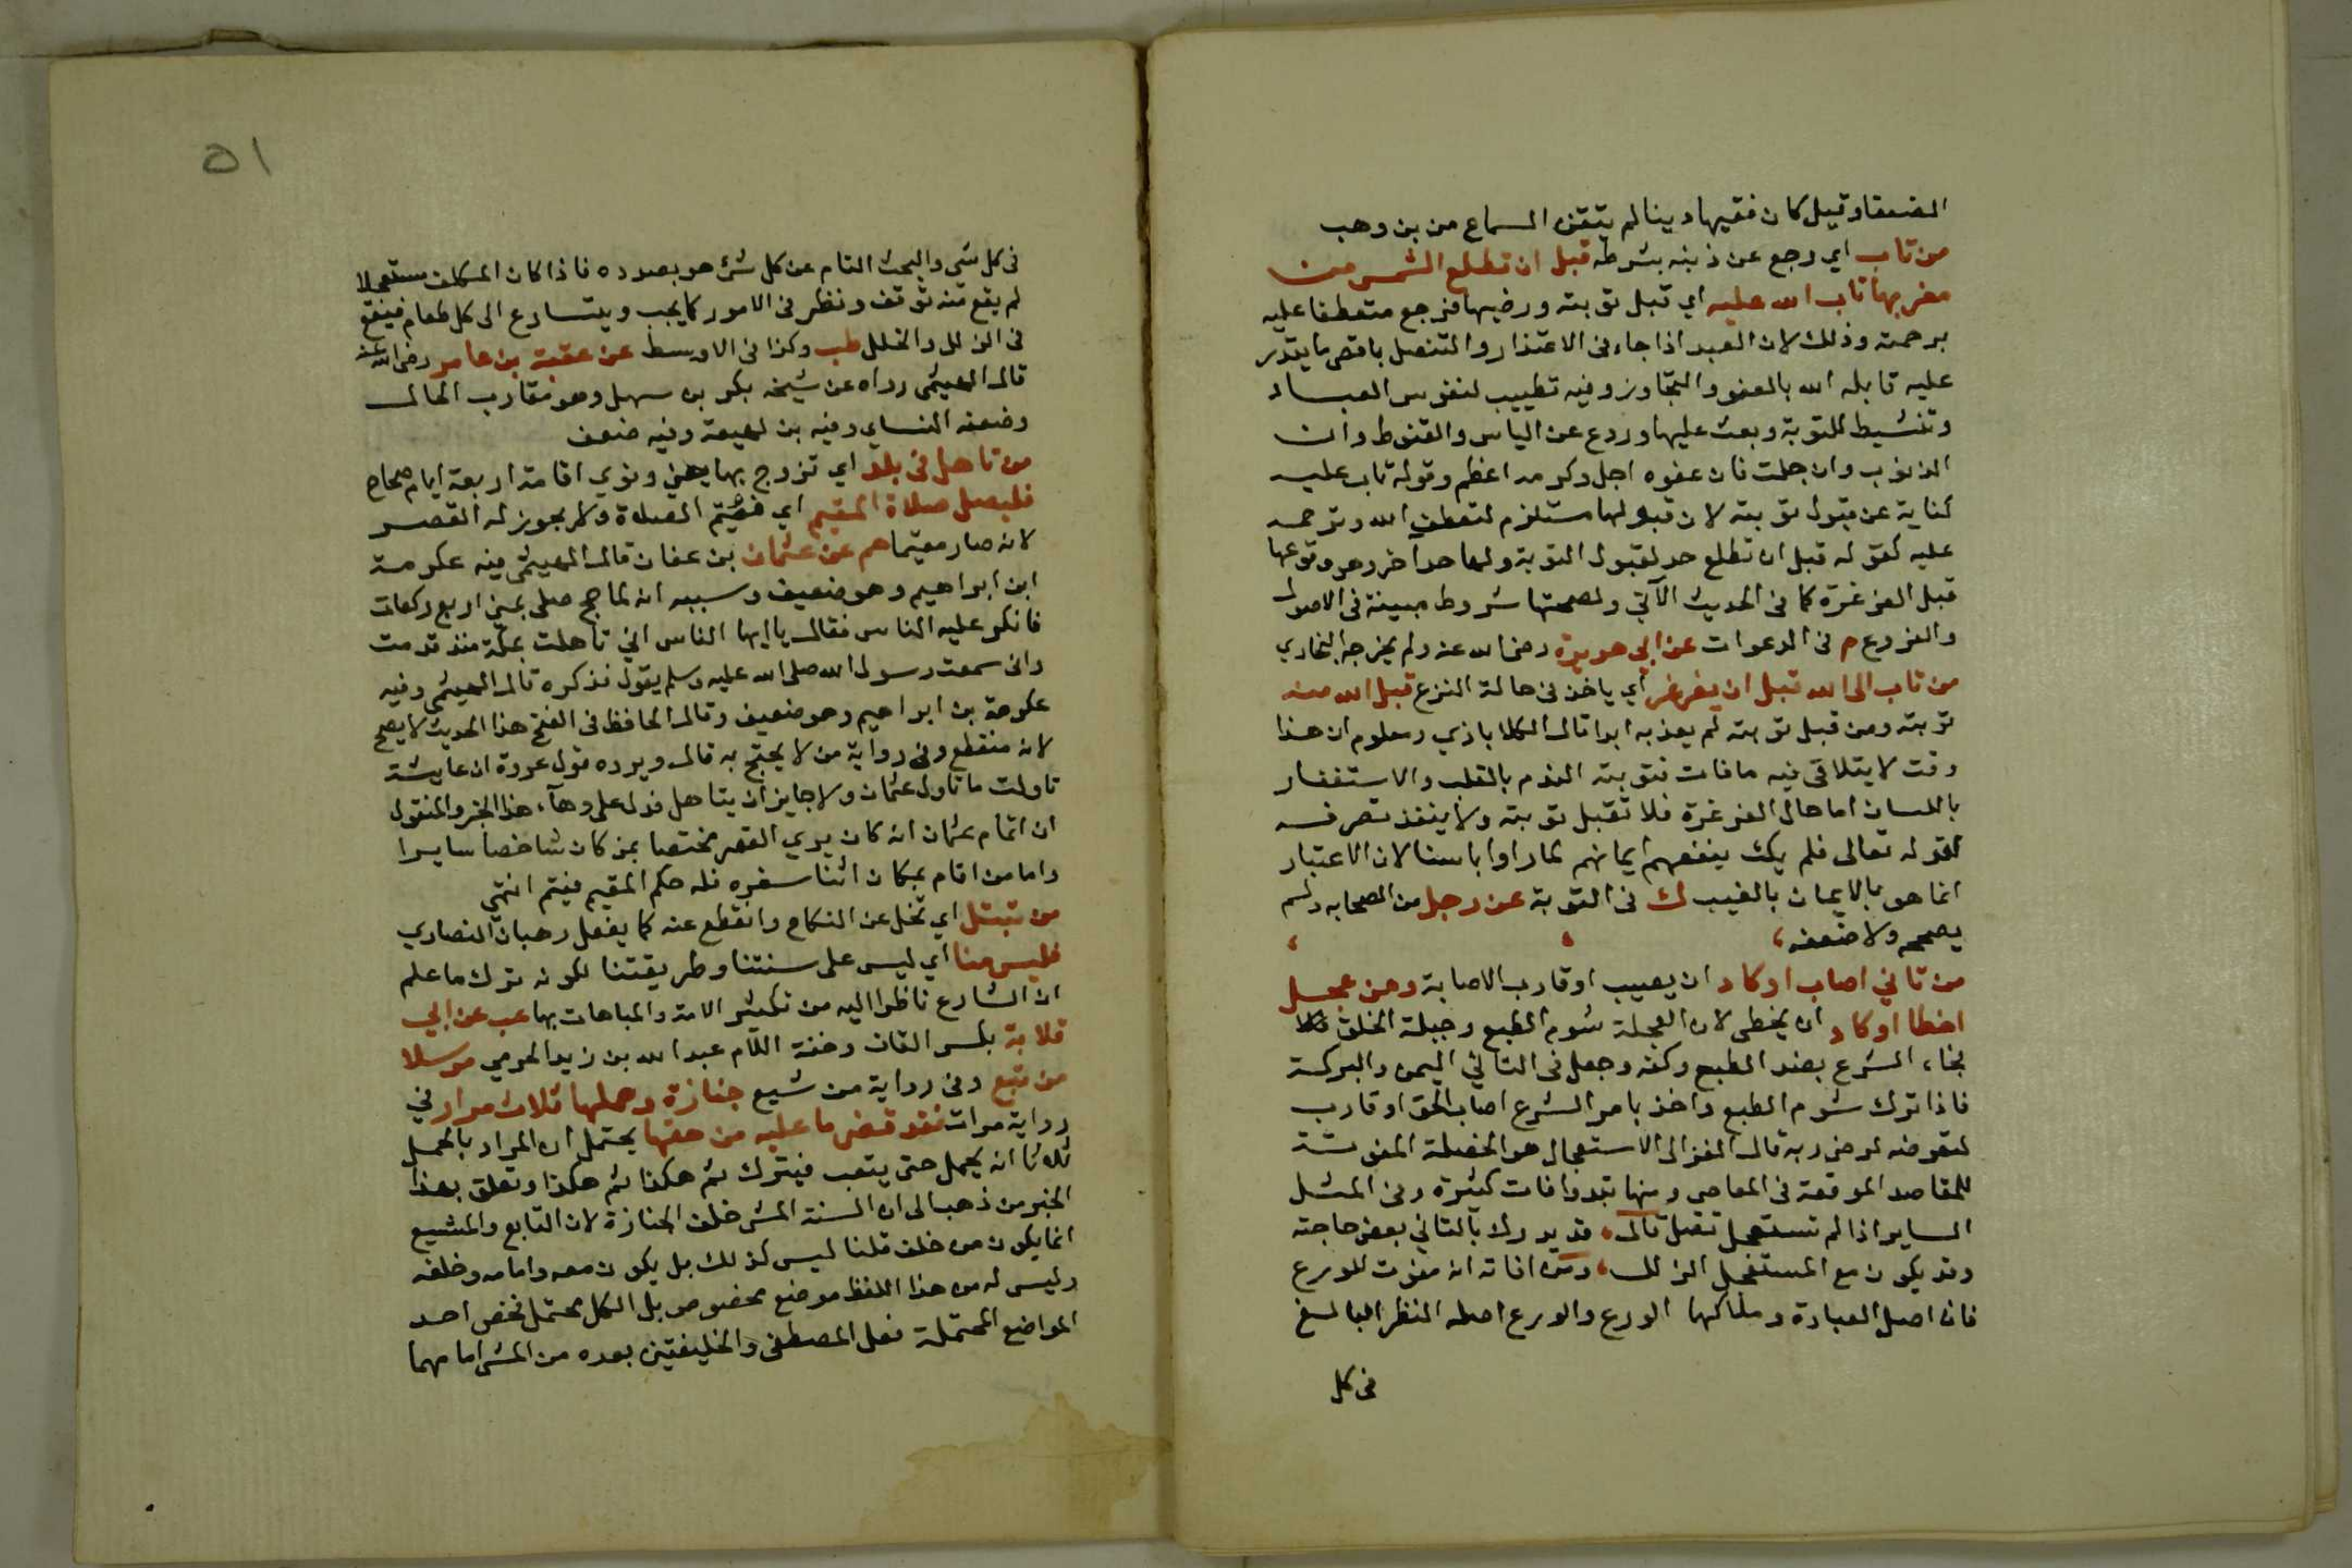 الضعفا وقيل كان فقيها دينا لم يتقن السماع من بن وهب
من تاب اي رجع عن ذنبه بشرطه قبل ان تطلع الشمس من
مغربها تاب الله عليه اي قبل توبته ورضيها فرجع متعطفا عليه
برحمته وذلك لان العبد اذا جاء في الاعتذار والتنصل باقصى ما يقدر
عليه قابله الله بالعفو والتجاوز وفيه تطييب لنفوس العباد
وتنشيط للتوبة وبعث عليها وردع عن الياس والقنوط وان
الذنوب وان جلت فان عفوه اجل وكرمه اعظم وقوله تاب عليه
كناية عن قبول توبته لان قبولها مستلزم لتعطف الله وترحمه
عليه كقوله قبل ان تطلع حد لقبول التوبة ولها حد آخر وهو وقوعها
قبل الغرغرة كما في الحديث الآتي ولصحتها شروط مبينة في الاصول
والفروع م في الدعوات عن ابي هريرة رضي الله عنه ولم يخرجه البخاري
من تاب الى الله قبل ان يغرغر اي ياخذ في حالة النزع قبل الله منه
توبته ومن قبل توبته لم يعذبه ابدا قال الكلاباذي ومعلوم ان هذا
وقت لا يتلافى فيه ما فات فتوبته الندم بالقلب والاستغفار
باللسان اما حال الغرغرة فلا تقبل توبته ولا ينفذ تصرفه
لقوله تعالى فلم يك ينفعهم ايمانهم لما راوا باسنا لان الاعتبار
انما هو بالايمان بالغيب ك في التوبة عن رجل من الصحابه ولم
يصححه ولا ضعفه
من تاني اصاب او كاد ان يصيب او قارب الاصابة ومن عجل
اخطا او كاد ان يخطي لان العجلة شوم الطبع وجبلة الخلق
نجاء الشرع بضد الطبع وكفه وجعل في التاني اليمن والبركة
فاذا ترك شوم الطبع واخذ بامر الشرع اصاب الحق او قارب
لتعرضه لرضى ربه قال الغزالي الاستعجال هو الخصلة المفوتة
للمقاصد الموقعة في المعاصي ومنها تبدوا فات كثيرة وفي المثل
الساير اذا لم تستعجل تصل قال قد يدرك بالتاني بعض حاجته
وقد يكون مع المستعجل الزلل ومن افاته انه مفوت للورع
فان اصل العبادة وملاكها الورع والورع اصله النظر البالغ
في كل
٥١
في كل شي والبحث التام عن كل شئ هو بصدده فاذا كان المكلف مستعجلا
لم يقع منه توقف ونظر في الامور كما يجب ويتسارع الى كل طعام فيقع
في الزلل والخلل طب وكذا في الاوسط عن عقبة بن عامر رضي الله عنه
قال الهيثمي رواه عن شيخه بكر بن سهل وهو مقارب الحال
وضعفه النساي وفيه بن لهيعة وفيه ضعف
من تاهل في بلد اي تزوج بها يعني ونوي اقامة اربعة ايام صحاح
فليصل صلاة المقيم اي فليتم الصلاة ولا يجوز له القصر
لانه صار مقيما حم عن عثمان بن عفان قال الهيثمي فيه عكرمة
ابن ابراهيم وهو ضعيف وسببه انه لما حج صلى بمنى اربع ركعات
فانكر عليه الناس فقال يا ايها الناس اني تاهلت بمكة منذ قدمت
واني سمعت رسول الله صلى الله عليه وسلم يقول فذكره قال الهيثمي وفيه
عكرمة بن ابراهيم وهو ضعيف وقال الحافظ في الفتح هذا الحديث لا يصح
لانه منقطع وفي رواية من لا يحتج به قال ويرده قول عروة ان عايشة
تاولت ما تاول عثمان ولا جايز ان يتاهل فدل على وهاء هذا الخبر والمنقول
ان اتمام عثمان انه كان يري القصر مختصا بمن كان شاخصا سايرا
واما من اقام بمكان اثنا سفره فله حكم المقيم فيتم انتهى
من تبتل اي تخلى عن النكاح وانقطع عنه كما يفعل رهبان النصاري
فليس منا اي ليس على سنتنا وطريقتنا لكونه ترك ما علم
ان الشارع ناظر اليه من تكثير الامة والمباهات بها عب عن ابي
قلابة بكسر القاف وخفة اللام عبد الله بن زيد الجرمي مرسلا
من تبع وفي رواية من شيع جنازة وحملها ثلاث مرار في
رواية مرات فقد قضى ما عليه من حقها يحتمل ان المراد بالحمل
ثلاثا انه يحمل حتى يتعب فيترك ثم هكذا ثم هكذا وتعلق بهذا
الخبر من ذهب الى ان السنة المشي خلف الجنازة لان التابع والمشيع
انما يكون من خلف قلنا ليس كذلك بل يكون معه وامامه وخلفه
وليس له من هذا اللفظ موضع مخصوص بل الكل محتمل فخص احد
المواضع المحتملة فعل المصطفى والخليفتين بعده من المشي امامهما